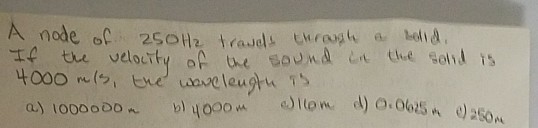 A node of 250Hz travels through a solid.
If the velocity of the sound in the solid is
4000 m/s, the wavelength is
a) 1000000m b) 4000m c) 16m d) 0.0625m e) 250m